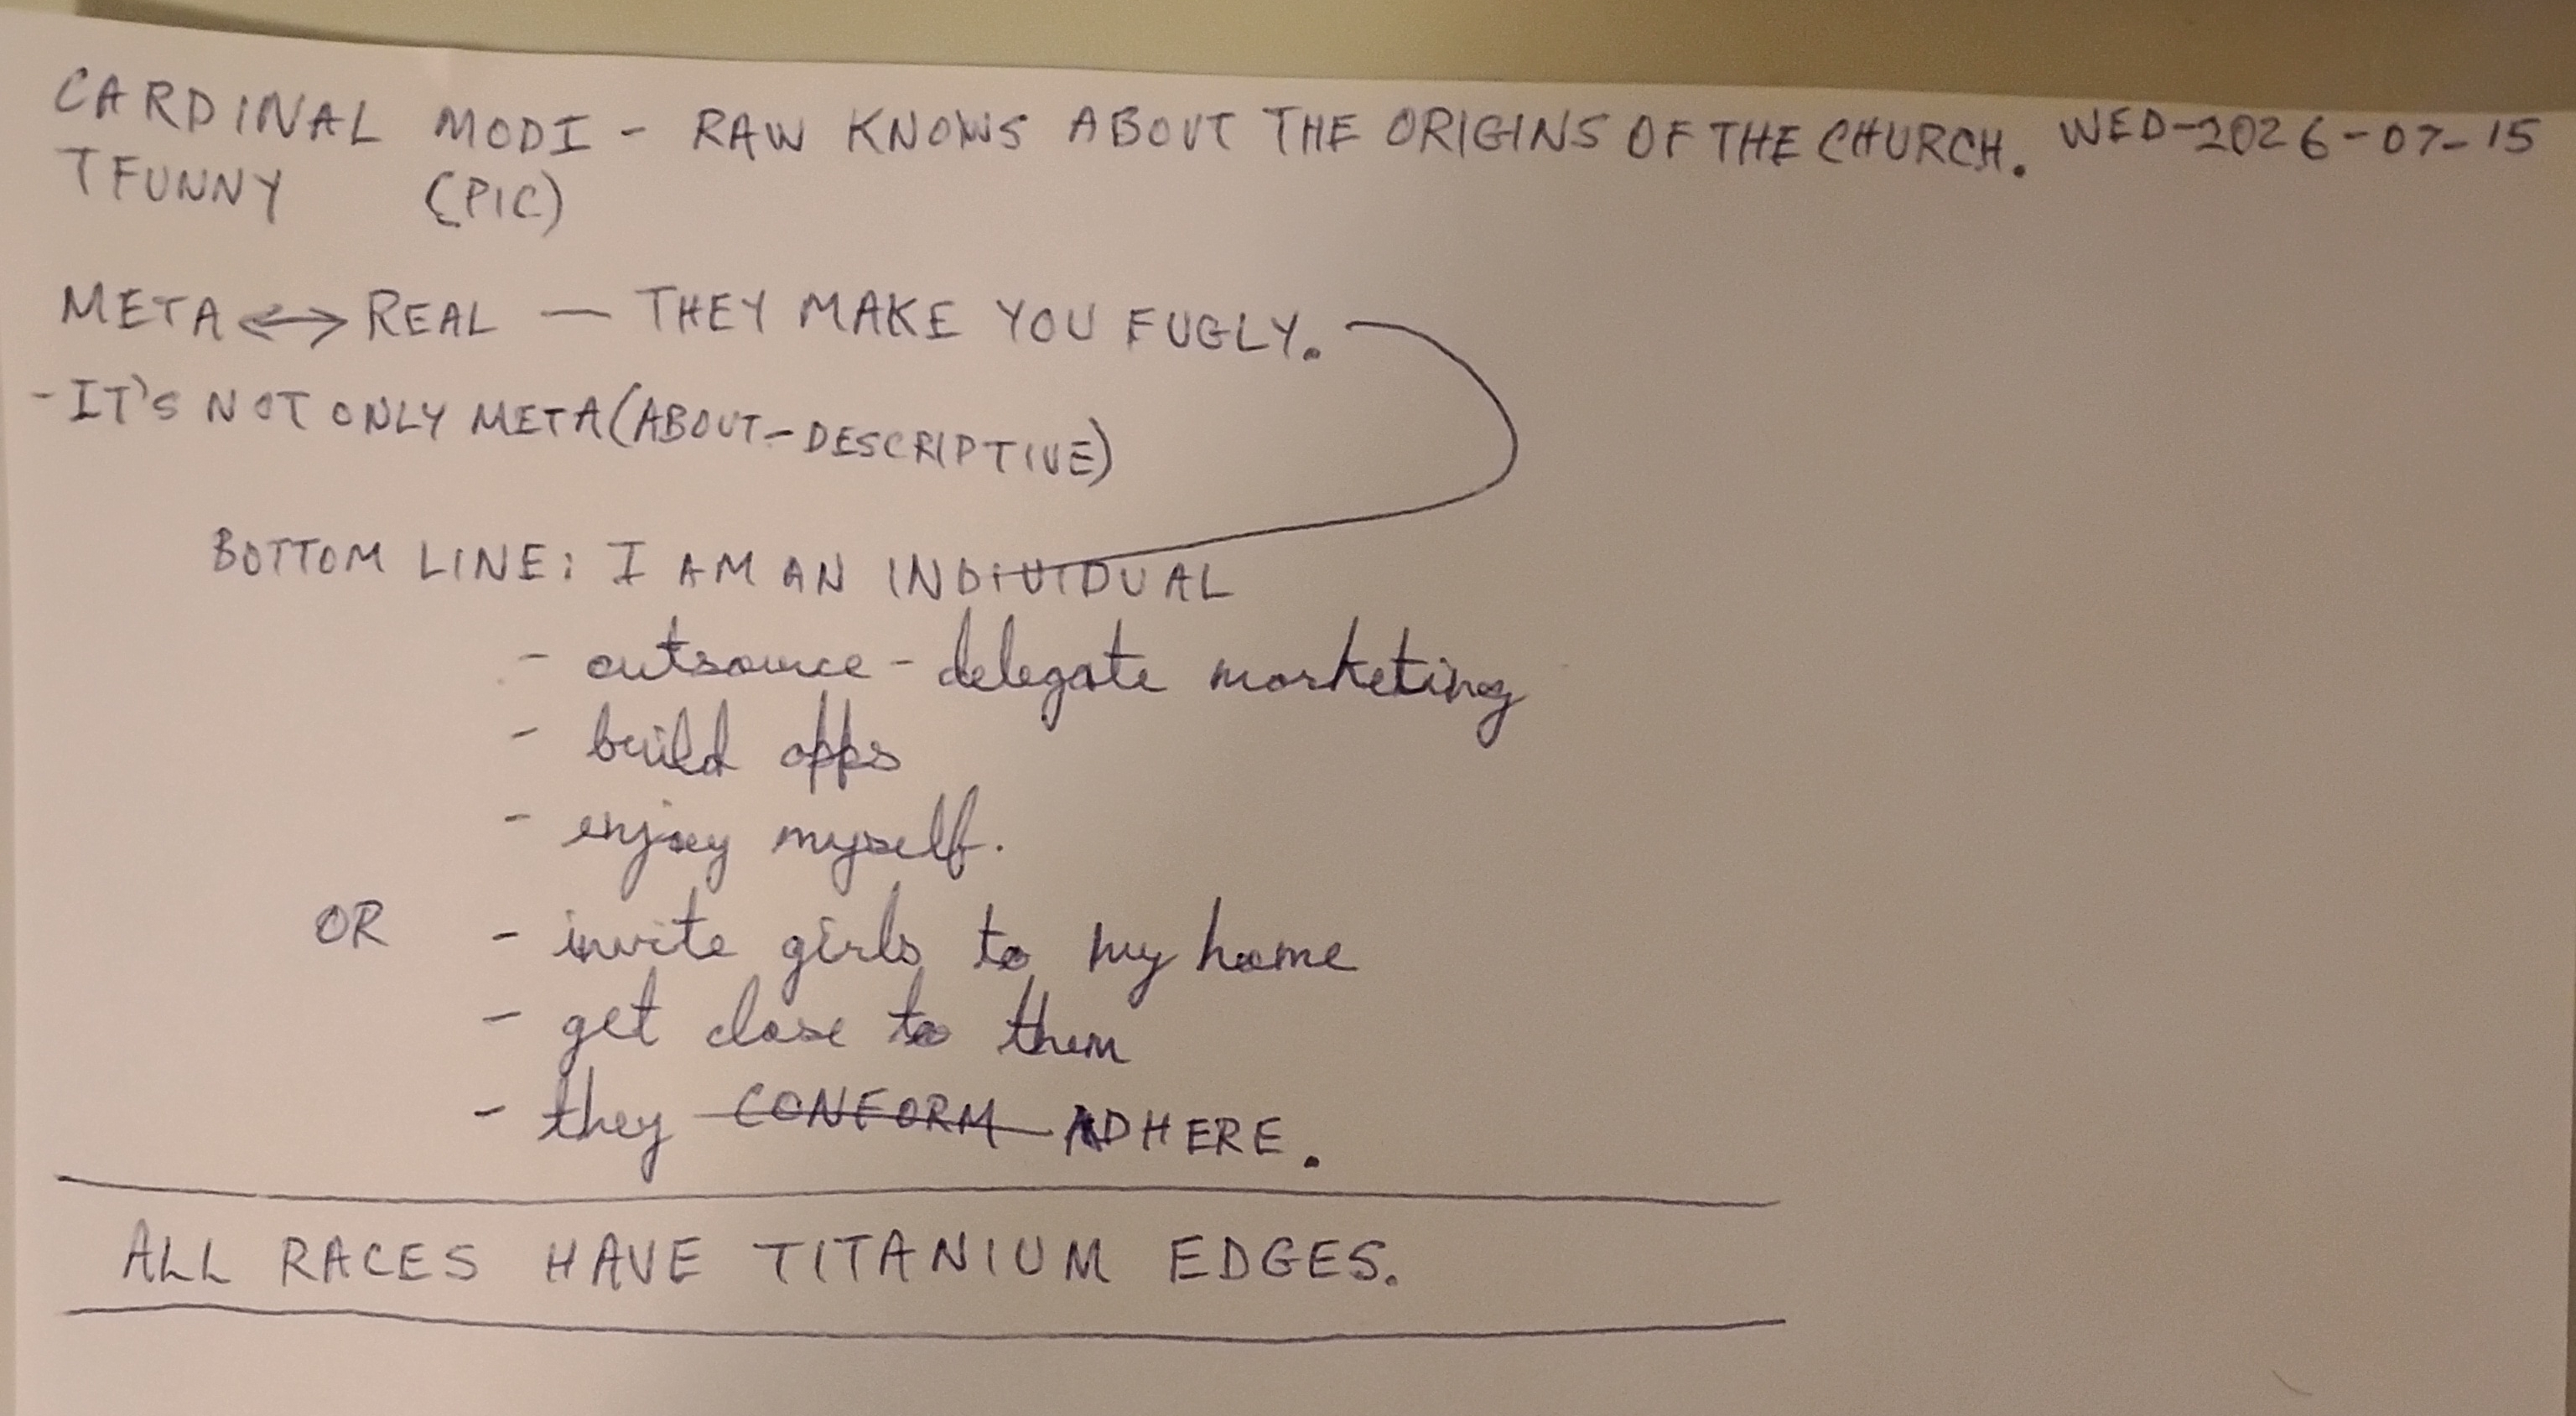 CARDINAL MODI - RAW KNOWS ABOUT THE ORIGINS OF THE CHURCH. WED-2026-07-15
TFUNNY (PIC)
META ↔ REAL — THEY MAKE YOU FUGLY.
- IT'S NOT ONLY META (ABOUT-DESCRIPTIVE)
BOTTOM LINE: I AM AN INDIVIDUAL
- outsource - delegate marketing
- build apps
- enjoy myself.
OR - invite girls to my home
- get close to them
- they CONFORM ADHERE.
ALL RACES HAVE TITANIUM EDGES.